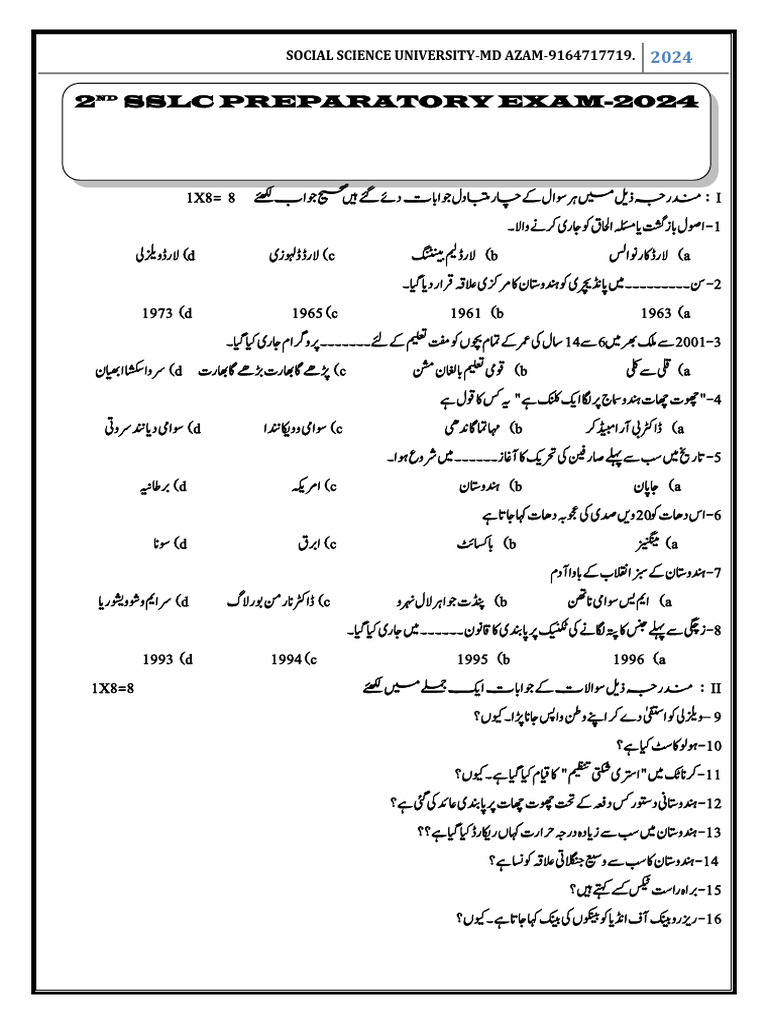 SOCIAL SCIENCE UNIVERSITY-MD AZAM-9164717719. 2024
2ND SSLC PREPARATORY EXAM-2024
I : مندرجہ ذیل میں ہر سوال کے چار متبادل جوابات دئے گئے ہیں صحیح جواب لکھئے 1X8= 8
1-اصول بازگشت یا مسئلہ الحاق کو جاری کرنے والا۔
a) لارڈ کارنوالس b) لارڈ لیم بینٹنگ c) لارڈ ڈلہوزی d) لارڈ ویلزلی
2-سن---------میں پانڈیچری کو ہندوستان کا مرکزی علاقہ قرار دیا گیا۔
a) 1963 b) 1961 c) 1965 d) 1973
3-2001سے ملک بھر میں 6 سے 14 سال کی عمر کے تمام بچوں کو مفت تعلیم کے لئے-------پروگرام جاری کیا گیا۔
a) قلی سے کلی b) قومی تعلیم بالغان مشن c) پڑھے گا بھارت بڑھے گا بھارت d) سروا سکشا ابھیان
4-"چھوت چھات ہندو سماج پر لگا ایک کلنک ہے" یہ کس کا قول ہے
a) ڈاکٹر بی آر امبیڈکر b) مہاتما گاندھی c) سوامی وویکانندا d) سوامی دیانند سروتی
5-تاریخ میں سب سے پہلے صارفین کی تحریک کا آغاز------میں شروع ہوا۔
a) جاپان b) ہندوستان c) امریکہ d) برطانیہ
6-اس دھات کو 20ویں صدی کی عجوبہ دھات کہا جاتا ہے
a) مینگنیز b) باکسائٹ c) ابرق d) سونا
7-ہندوستان کے سبز انقلاب کے باوا آدم
a) ایم یس سوامی ناتھن b) پنڈت جواہر لال نہرو c) ڈاکٹر نارمن بورلاگ d) سر ایم وشوویشوریا
8-زچگی سے پہلے جنس کا پتہ لگانے کی ٹکنیک پر پابندی کا قانون------میں جاری کیا گیا۔
a) 1996 b) 1995 c) 1994 d) 1993
II : مندرجہ ذیل سوالات کے جوابات ایک جملے میں لکھئے 1X8=8
9 –ویلزلی کو استفیٰ دے کر اپنے وطن واپس جانا پڑا۔ کیوں؟
10-ہولوکاسٹ کیا ہے؟
11-کرناٹک میں "استری شکتی تنظیم" کا قیام کیا گیا ہے۔ کیوں؟
12-ہندوستانی دستور کس دفعہ کے تحت چھوت چھات پر پابندی عائد کی گئی ہے؟
13-ہندوستان میں سب سے زیادہ درجہ حرارت کہاں ریکارڈ کیا گیا ہے؟؟
14-ہندوستان کا سب سے وسیع جنگلاتی علاقہ کونسا ہے؟
15-براہ راست ٹیکس کسے کہتے ہیں؟
16-ریزرو بینک آف انڈیا کو بینکوں کی بینک کہا جاتا ہے۔ کیوں؟